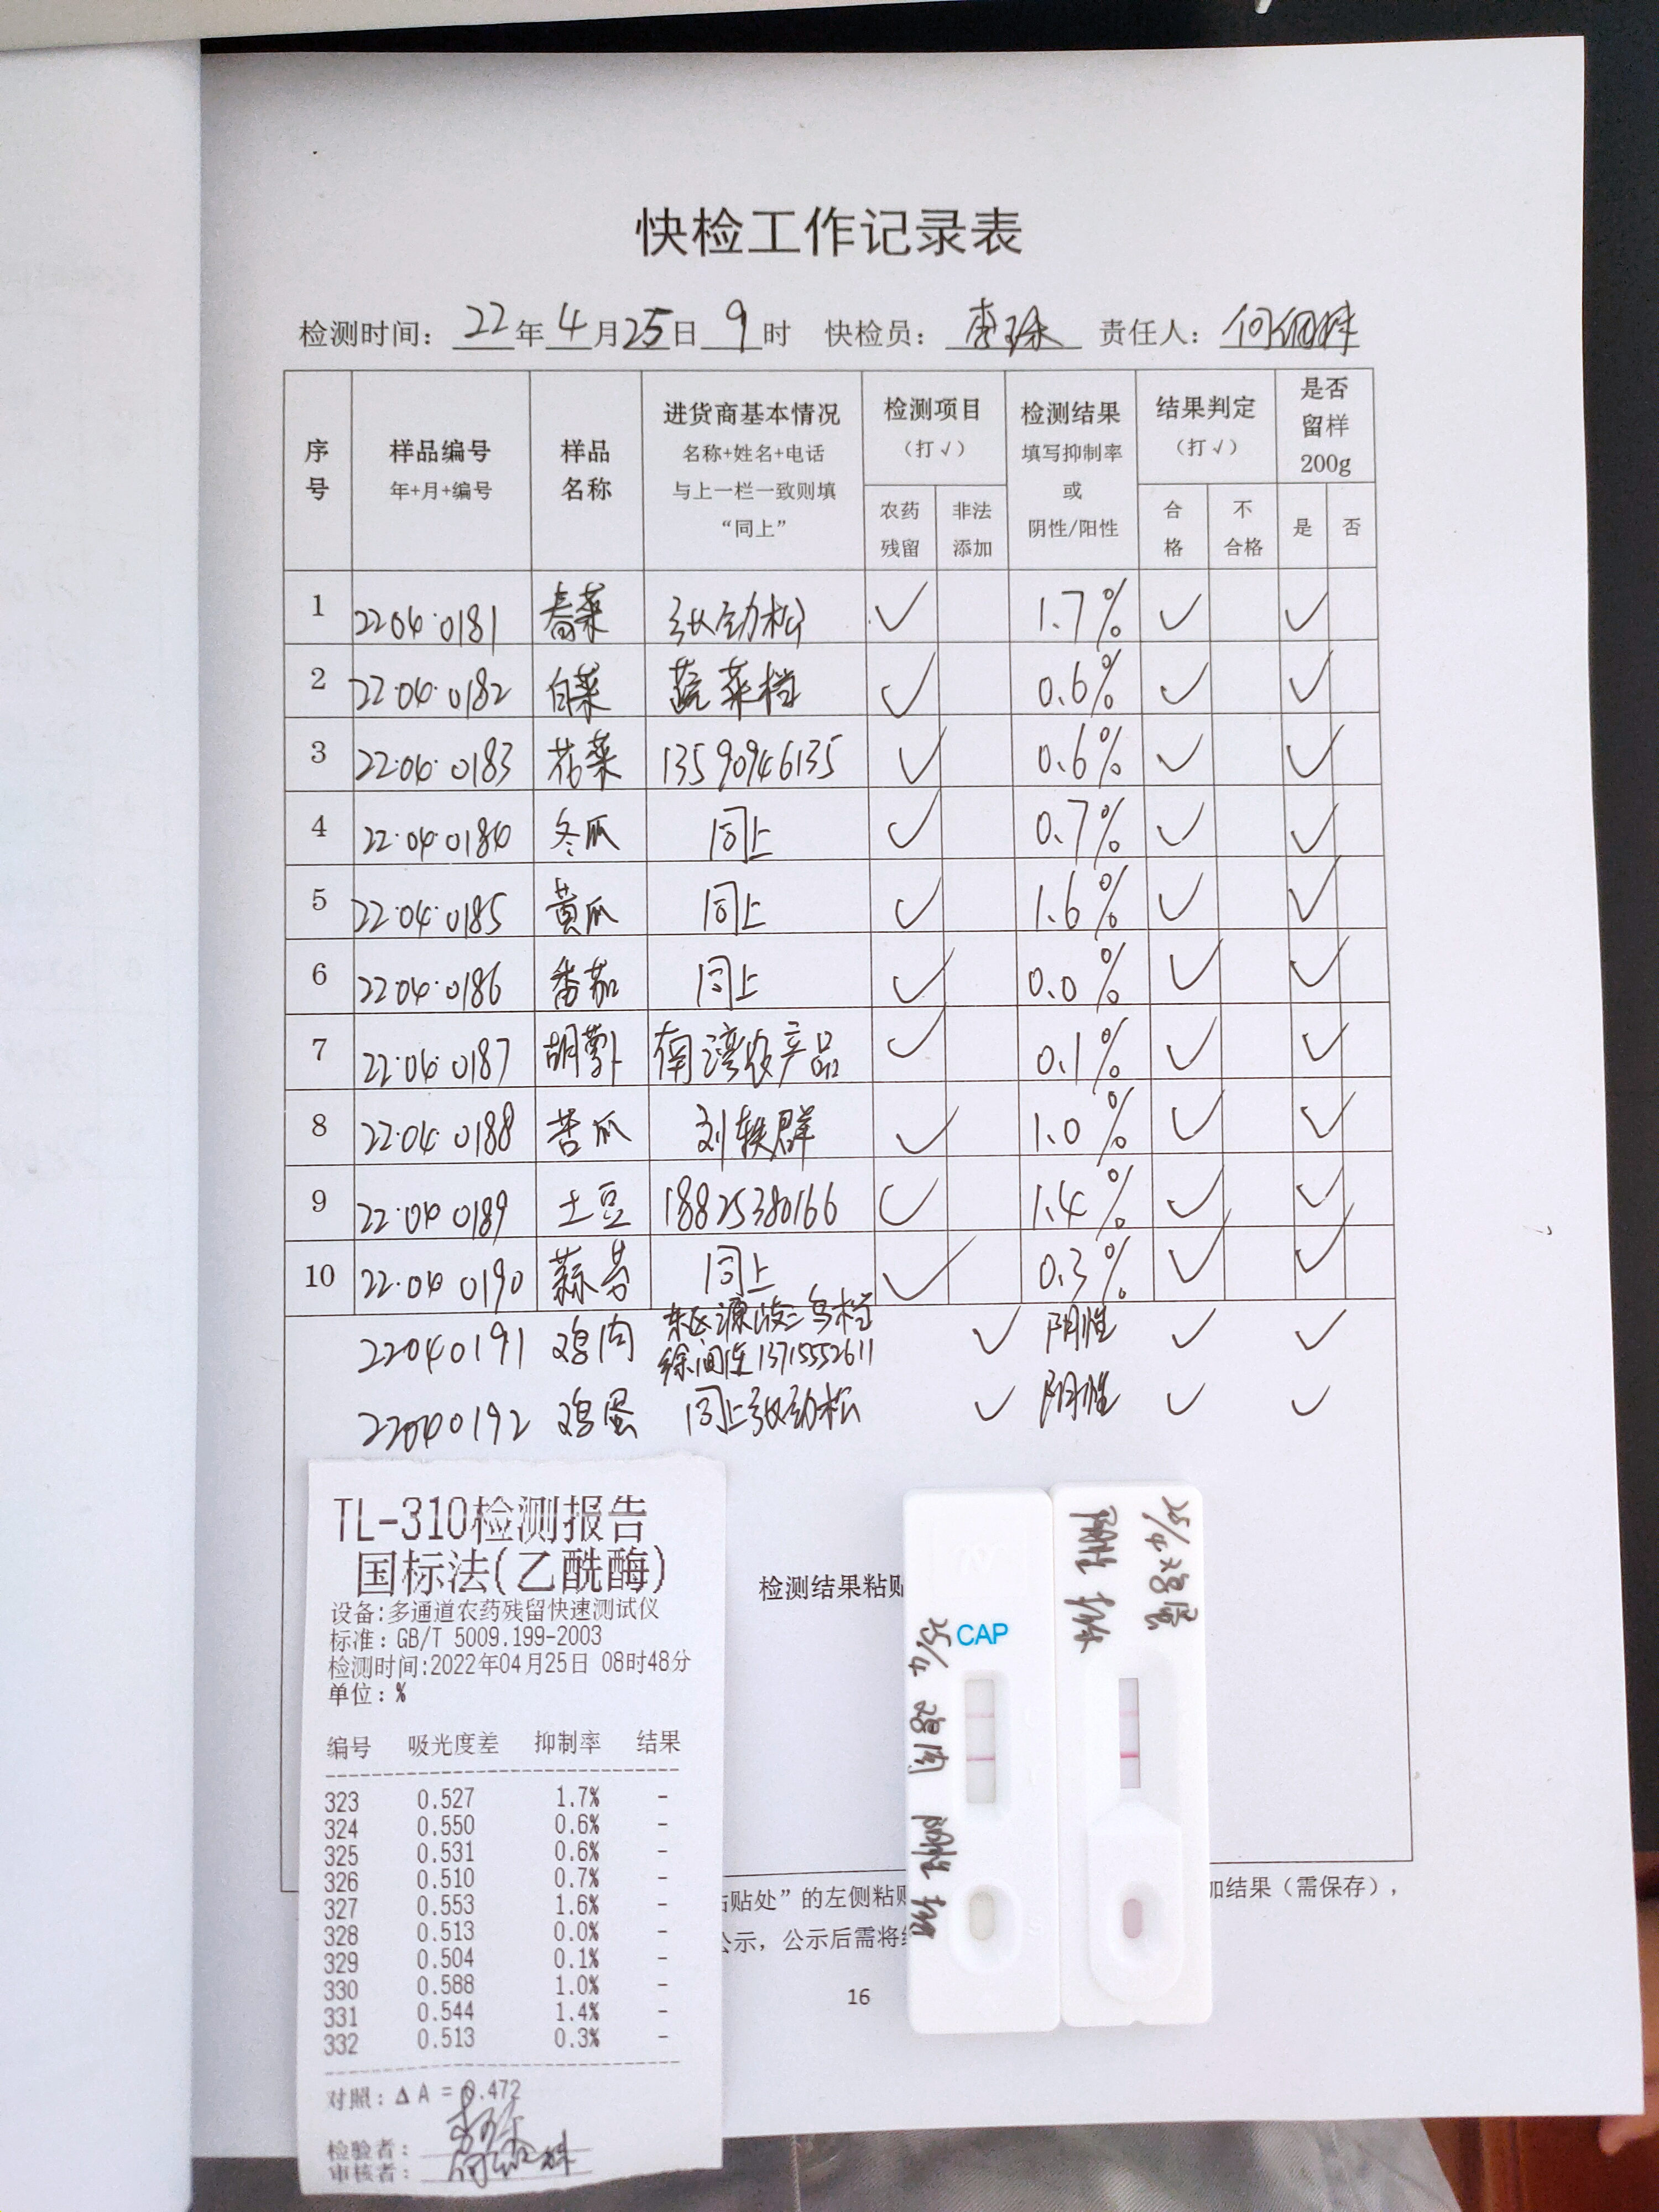 快检工作记录表
检测时间: 22年4月25日9时 快检员: 责任人:
序号 样品编号 年+月+编号 样品名称 进货商基本情况 名称+姓名+电话 与上一栏一致则填“同上” 检测项目（打√） 农药残留 非法添加 检测结果 填写抑制率或阴性/阳性 结果判定（打√） 合格 不合格 是否留样200g 是 否
1 2204·0181 春菜 张劲松 ✓ 1.7% ✓ ✓
2 22·04·0182 白菜 蔬菜档 ✓ 0.6% ✓ ✓
3 22·04·0183 花菜 13590946135 ✓ 0.6% ✓ ✓
4 22·04·0184 冬瓜 同上 ✓ 0.7% ✓ ✓
5 22·04·0185 黄瓜 同上 ✓ 1.6% ✓ ✓
6 22·04·0186 番茄 同上 ✓ 0.0% ✓ ✓
7 22·04·0187 胡萝卜 南湾农产品 ✓ 0.1% ✓ ✓
8 22·04·0188 苦瓜 刘轶群 ✓ 1.0% ✓ ✓
9 22·04·0189 土豆 18825380166 ✓ 1.4% ✓ ✓
10 22·04·0190 蒜苔 同上 ✓ 0.3% ✓ ✓
22040191 鸡肉 13715552611 ✓ 阴性 ✓ ✓
22040192 鸡蛋 同上张劲松 ✓ 阴性 ✓ ✓
TL-310检测报告
国标法(乙酰酶)
设备:多通道农药残留快速测试仪
标准: GB/T 5009.199-2003
检测时间:2022年04月25日 08时48分
单位: %
编号 吸光度差 抑制率 结果
323 0.527 1.7% -
324 0.550 0.6% -
325 0.531 0.6% -
326 0.510 0.7% -
327 0.553 1.6% -
328 0.513 0.0% -
329 0.504 0.1% -
330 0.588 1.0% -
331 0.544 1.4% -
332 0.513 0.3% -
对照: Δ A = 0.472
检验者:
审核者:
检测结果粘贴
CAP
25/4 鸡肉 阴性
25/4 鸡蛋
阴性
粘贴处”的左侧粘贴
加结果（需保存），
公示，公示后需将
16